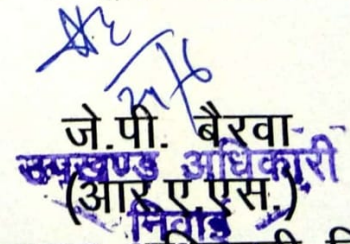 जे.पी. बैरवा
उपखण्ड अधिकारी
(आर.ए.एस.)
निवाई